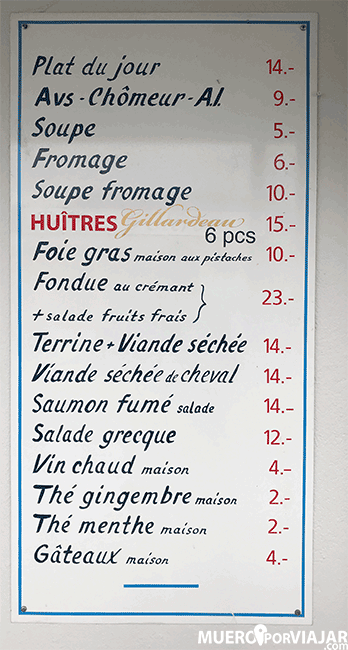 Plat du jour 14.-
Avs - Chômeur - A.I. 9.-
Soupe 5.-
Fromage 6.-
Soupe fromage 10.-
HUÎTRES Gillardeau 15.-
6 pcs
Foie gras maison aux pistaches 10.-
Fondue au crémant
23.-
+ salade fruits frais
Terrine + Viande séchée 14.-
Viande séchée de cheval 14.-
Saumon fumé salade 14.-
Salade grecque 12.-
Vin chaud maison 4.-
Thé gingembre maison 2.-
Thé menthe maison 2.-
Gâteaux maison 4.-
MUEROPORVIAJAR
.com